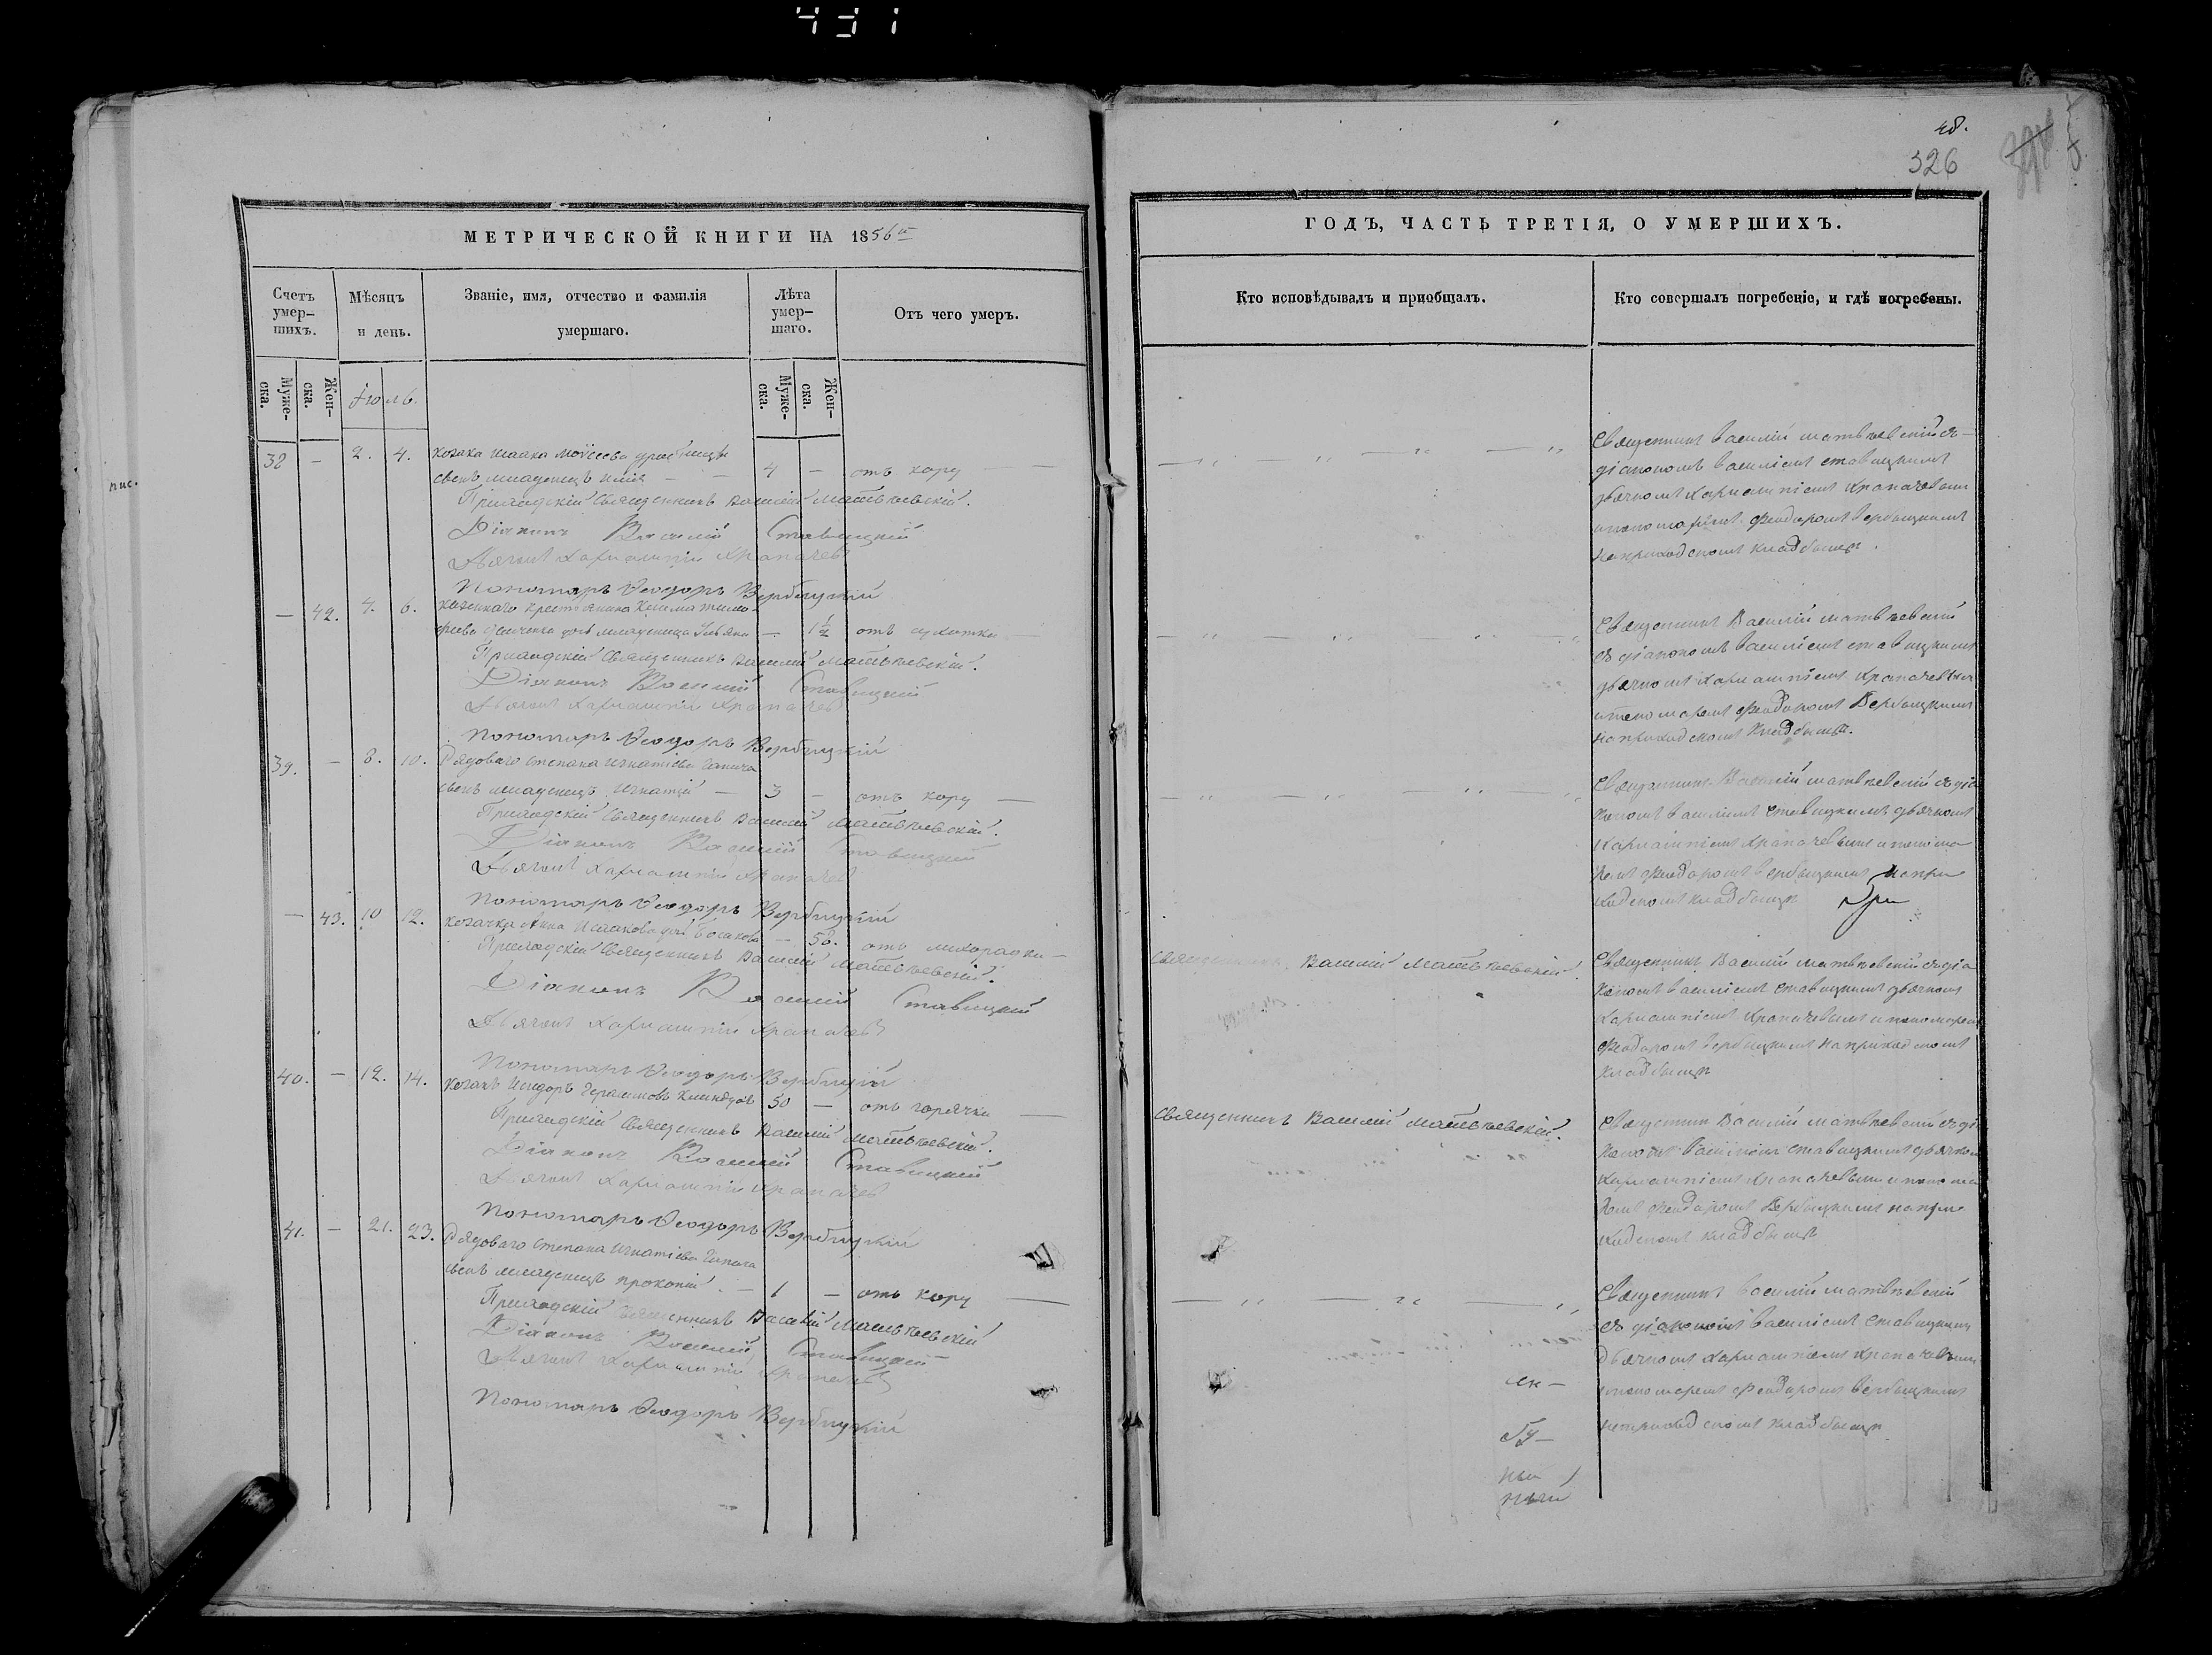 431
48.
326
пис.
МЕТРИЧЕСКОЙ КНИГИ НА 1856й
Счетъ умер-шихъ.
Мѣсяцъ и день.
Званіе, имя, отчество и фамилія умершаго.
Лѣта умер-шаго.
Отъ чего умеръ.
Муже-ска.
Жен-ска.
Іюль.
Муже-ска.
Жен-ска.
38 — 2. 4. козака Исаака Моѵсеева
сынъ младенецъ Илія — 4 — отъ кору
Приходскій Священникъ Василій Матвѣевскій.
Діаконъ Василій Ставицкій
Дьячокъ Харлампій Храпачевъ
Пономарь Ѳеодоръ Вербицкій
— 42. 4. 6. казеннаго крестьянина Косьмы Тимо-
фѣева дочь младеница Ульяна — 1½ отъ сухотки
Приходскій Священникъ Василій Матвѣевскій.
Діаконъ Василій Ставицкій
Дьячокъ Харлампій Храпачевъ
Пономарь Ѳеодоръ Вербицкій
39. — 8. 10. Рядоваго Степана Игнатіева
сынъ младенецъ Игнатій — 3 — отъ кору —
Приходскій Священникъ Василій Матвѣевскій.
Діаконъ Василій Ставицкій
Дьячокъ Харлампій Храпачевъ
Пономарь Ѳеодоръ Вербицкій
— 43. 10 12. козачка Анна Исаакова — 58. отъ лихорадки —
Приходскій Священникъ Василій Матвѣевскій.
Діаконъ Василій Ставицкій
Дьячокъ Харлампій Храпачевъ
Пономарь Ѳеодоръ Вербицкій
40. — 12. 14. козакъ Исидоръ Герасимовъ 50 — отъ горячки —
Приходскій Священникъ Василій Матвѣевскій.
Діаконъ Василій Ставицкій
Дьячокъ Харлампій Храпачевъ
Пономарь Ѳеодоръ Вербицкій
41. — 21. 23. Рядоваго Степана Игнатіева
сынъ младенецъ Прокопій — 1 — отъ кору —
Приходскій Священникъ Василій Матвѣевскій
Діаконъ Василій Ставицкій
Дьячокъ Харлампій Храпачевъ
Пономарь Ѳеодоръ Вербицкій
ГОДЪ, ЧАСТЬ ТРЕТІЯ, О УМЕРШИХЪ.
Кто исповѣдывалъ и пріобщалъ.
Кто совершалъ погребеніе, и гдѣ погребены.
Священникъ Василій Матвѣевскій съ
діакономъ Василіемъ Ставицкимъ
дьячкомъ Харлампіемъ Храпачевымъ
и пономаремъ Феодоромъ Вербицкимъ
на приходскомъ кладбищѣ.
Священникъ Василій Матвѣевскій
съ діакономъ Василіемъ Ставицкимъ
дьячкомъ Харлампіемъ Храпачевымъ
и пономаремъ Феодоромъ Вербицкимъ
на приходскомъ кладбищѣ.
Священникъ Василій Матвѣевскій съ діа
кономъ Василіемъ Ставицкимъ дьячкомъ
Харлампіемъ Храпачевымъ и понома
ремъ Феодоромъ Вербицкимъ на при
ходскомъ кладбищѣ
Священникъ Василій Матвѣевскій.
Священникъ Василій Матвѣевскій съ діа
кономъ Василіемъ Ставицкимъ дьячкомъ
Харлампіемъ Храпачевымъ и пономаремъ
Феодоромъ Вербицкимъ на приходскомъ
кладбищѣ
Священникъ Василій Матвѣевскій.
Священникъ Василій Матвѣевскій съ діа
кономъ Василіемъ Ставицкимъ дьячкомъ
Харлампіемъ Храпачевымъ и понома
ремъ Феодоромъ Вербицкимъ на при
ходскомъ кладбищѣ
Священникъ Василій Матвѣевскій
съ діакономъ Василіемъ Ставицкимъ
дьячкомъ Харлампіемъ Храпачевымъ
и пономаремъ Феодоромъ Вербицкимъ
на приходскомъ кладбищѣ